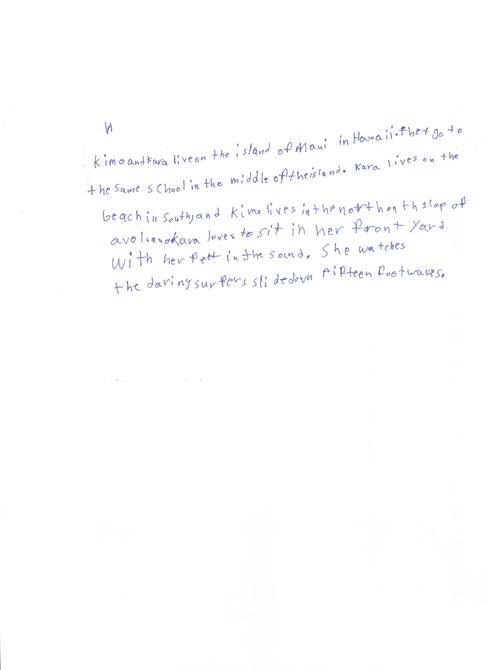 K
Kimo and Kara live on the island of Maui in Hawaii. They go to
the same school in the middle of the island. Kara lives on the
beach in South, and Kimo lives in the north on th slop of
a volcano Kara loves to sit in her front yard
With her fett in the sound. She watches
the daring surfers slide down fifteen foot waves.